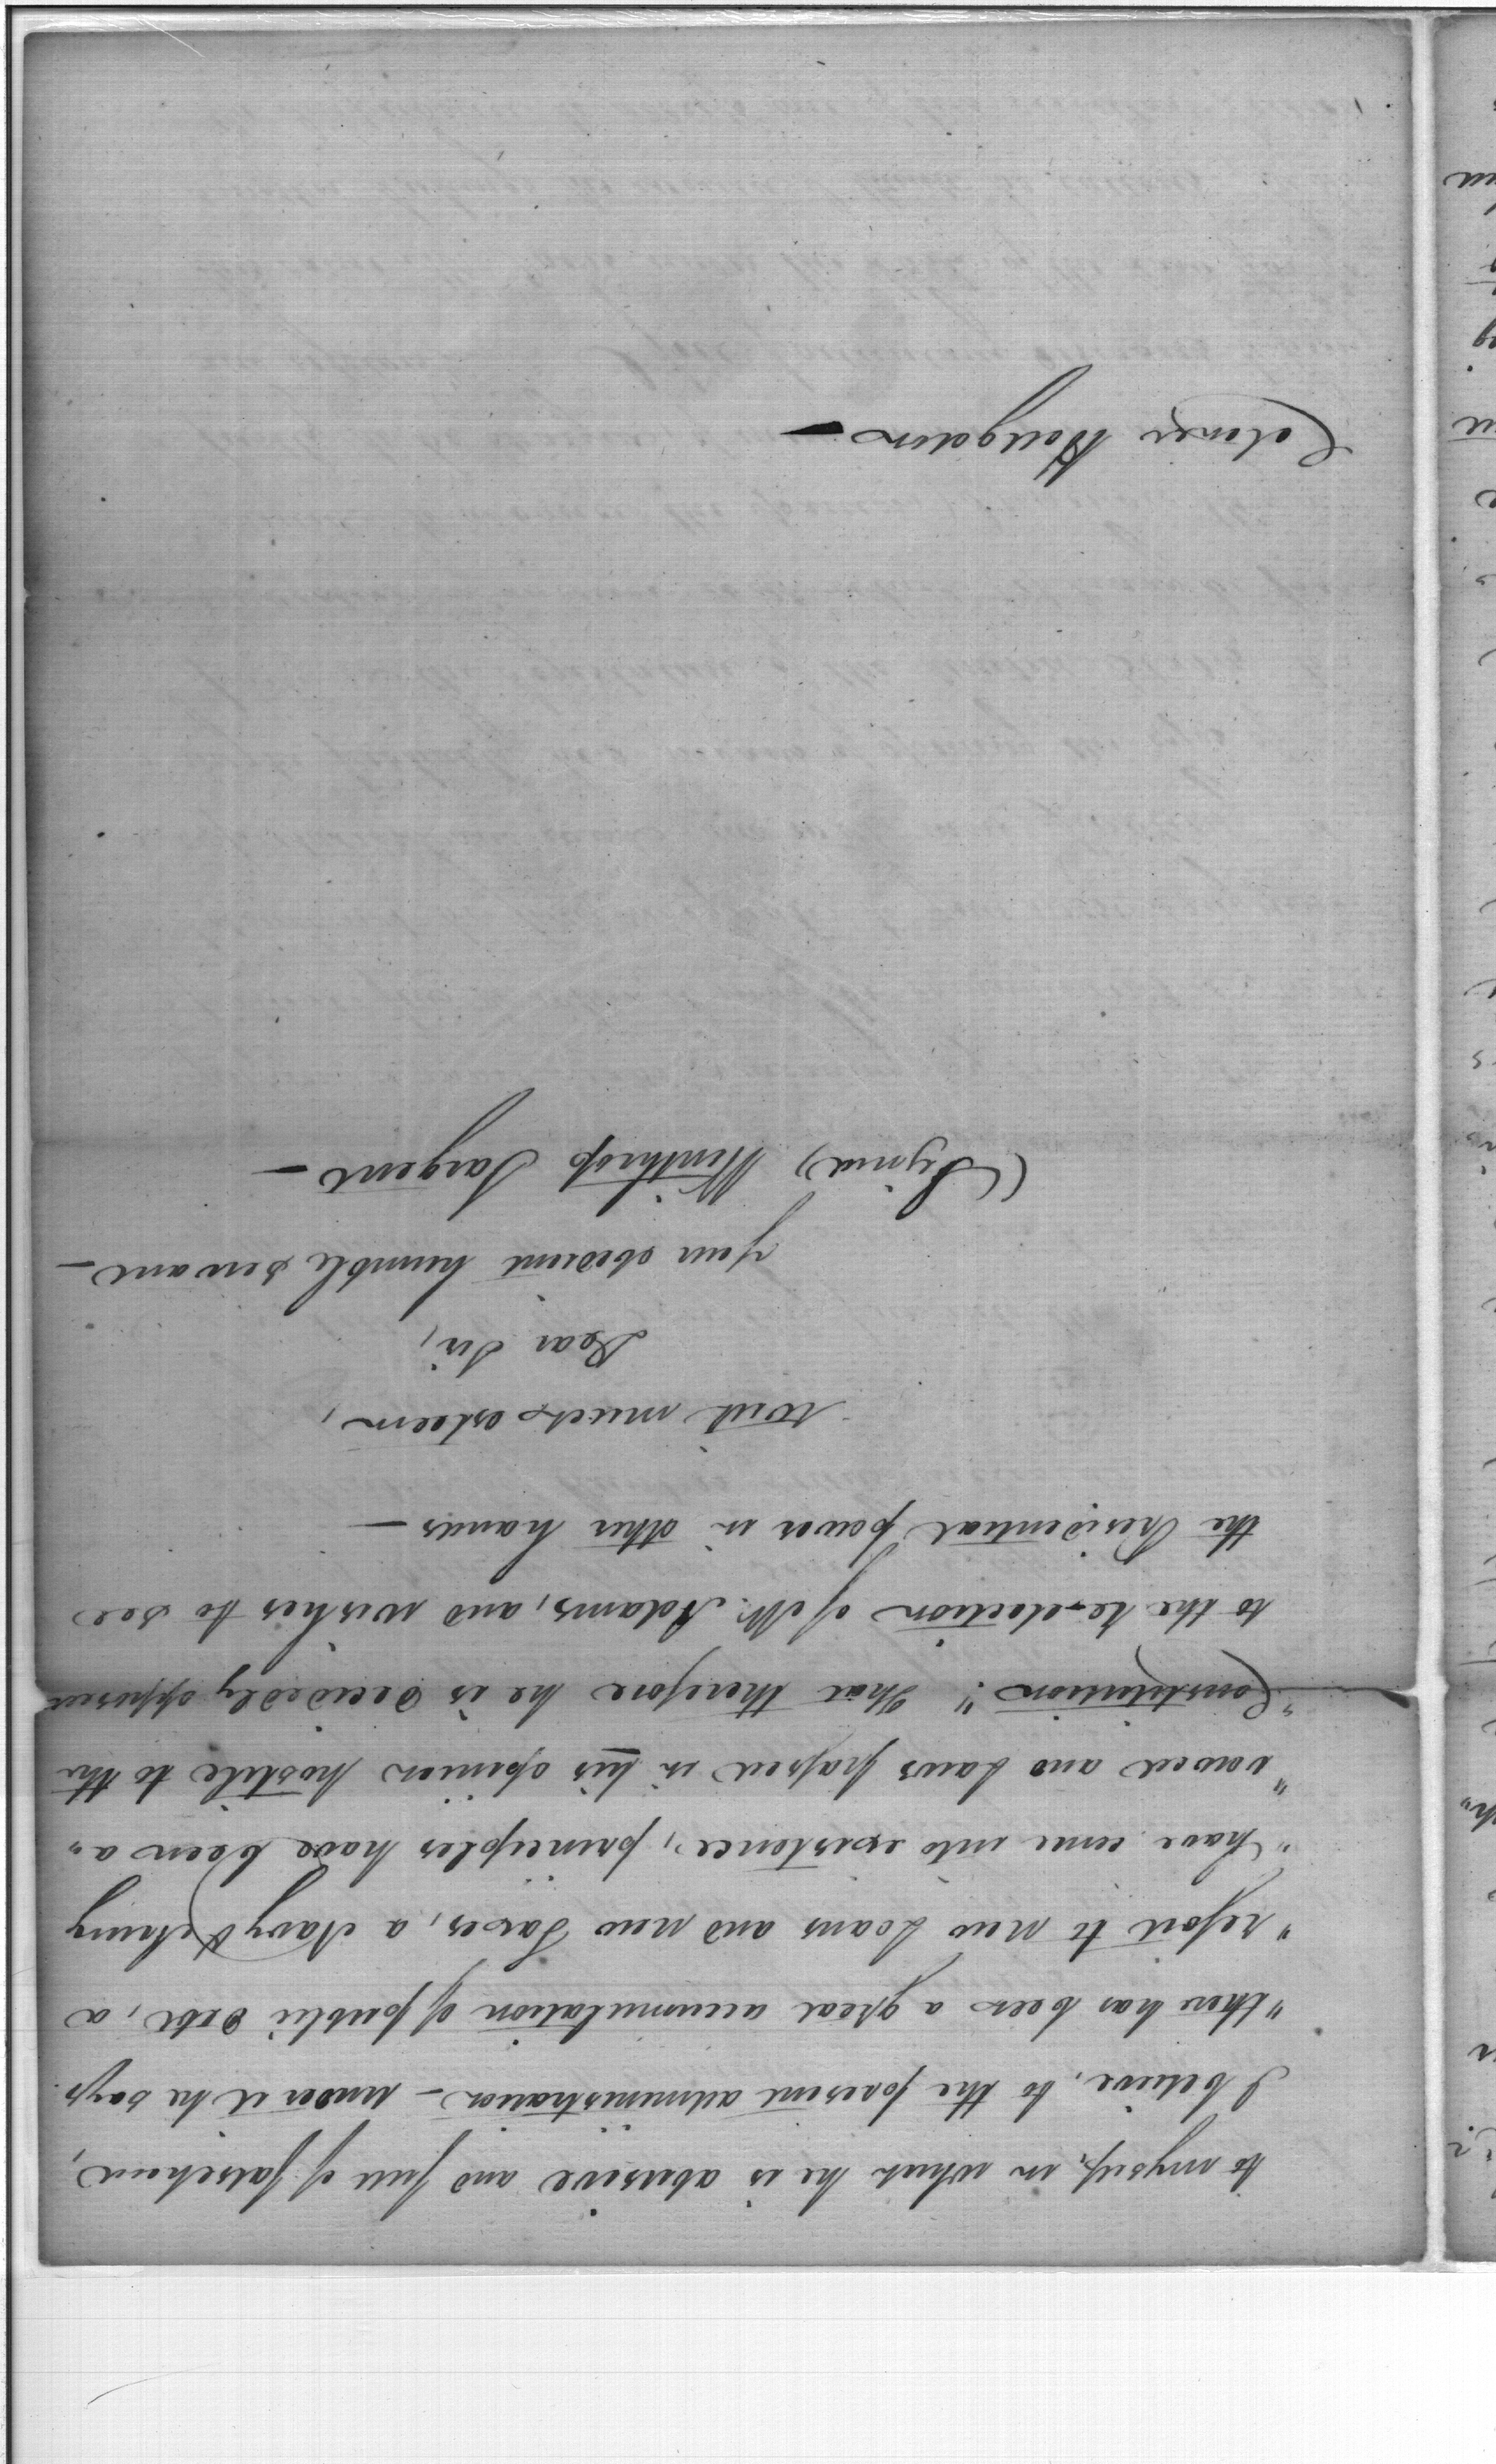 to myself, in which he is abusive and full of falsehood,
I believe, to the present administration — under it he says
"there has been a great accumulation of public debt, a
"resort to new Loans and new Taxes, a Navy & Army
"have come into existence, principles have been a"
"vowed and Laws passed in his opinion hostile to the
"Constitution". That therefore he is decidedly opposed
to the re-election of Mr. Adams, and wishes to see
the Presidential power in other hands —
With much esteem,
Dear Sir,
your obedient humble servant —
(Signed) Winthrop Sargent —
Colonel